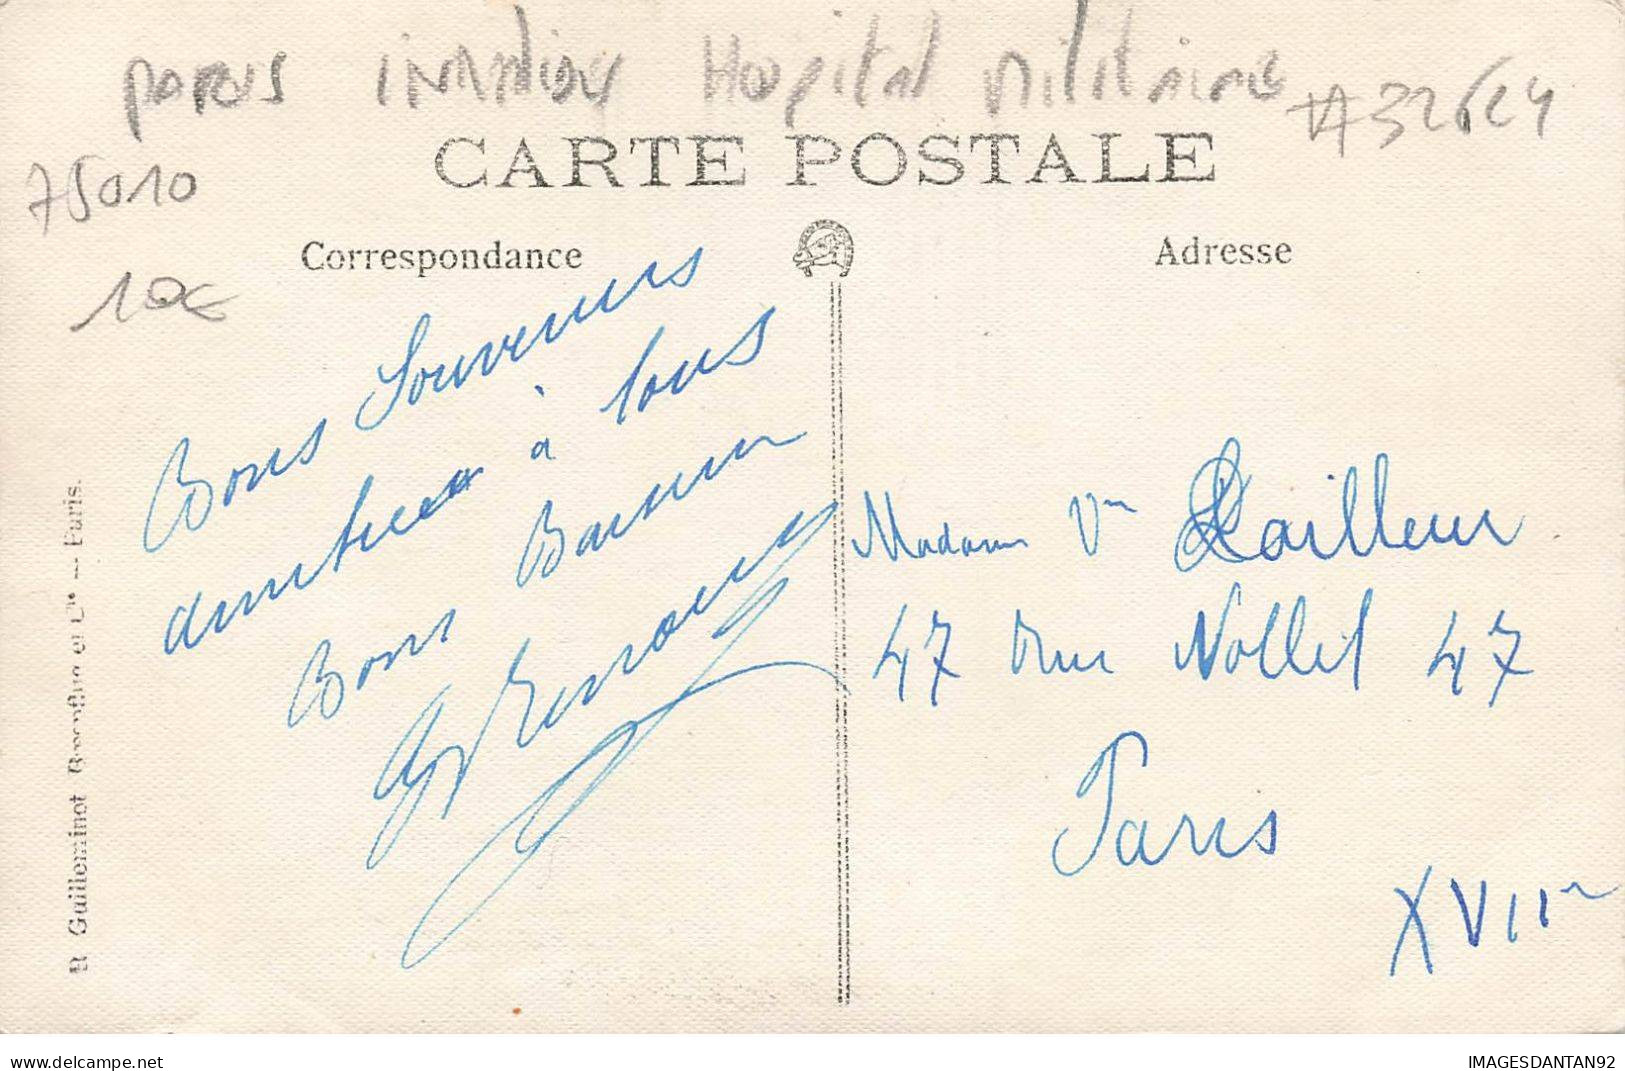 PARIS INVALIDES HOPITAL MILITAIRE #32624
75010
10€
CARTE POSTALE
Correspondance
Adresse
Bons Souvenirs
amitiés à tous
Bons Baisers
Madame Vve Lailleur
47 rue Nollet 47
Paris
XVIIe
R. Guilleminot Bœspflug et Cie — Paris.
www.delcampe.net
IMAGESDANTAN92